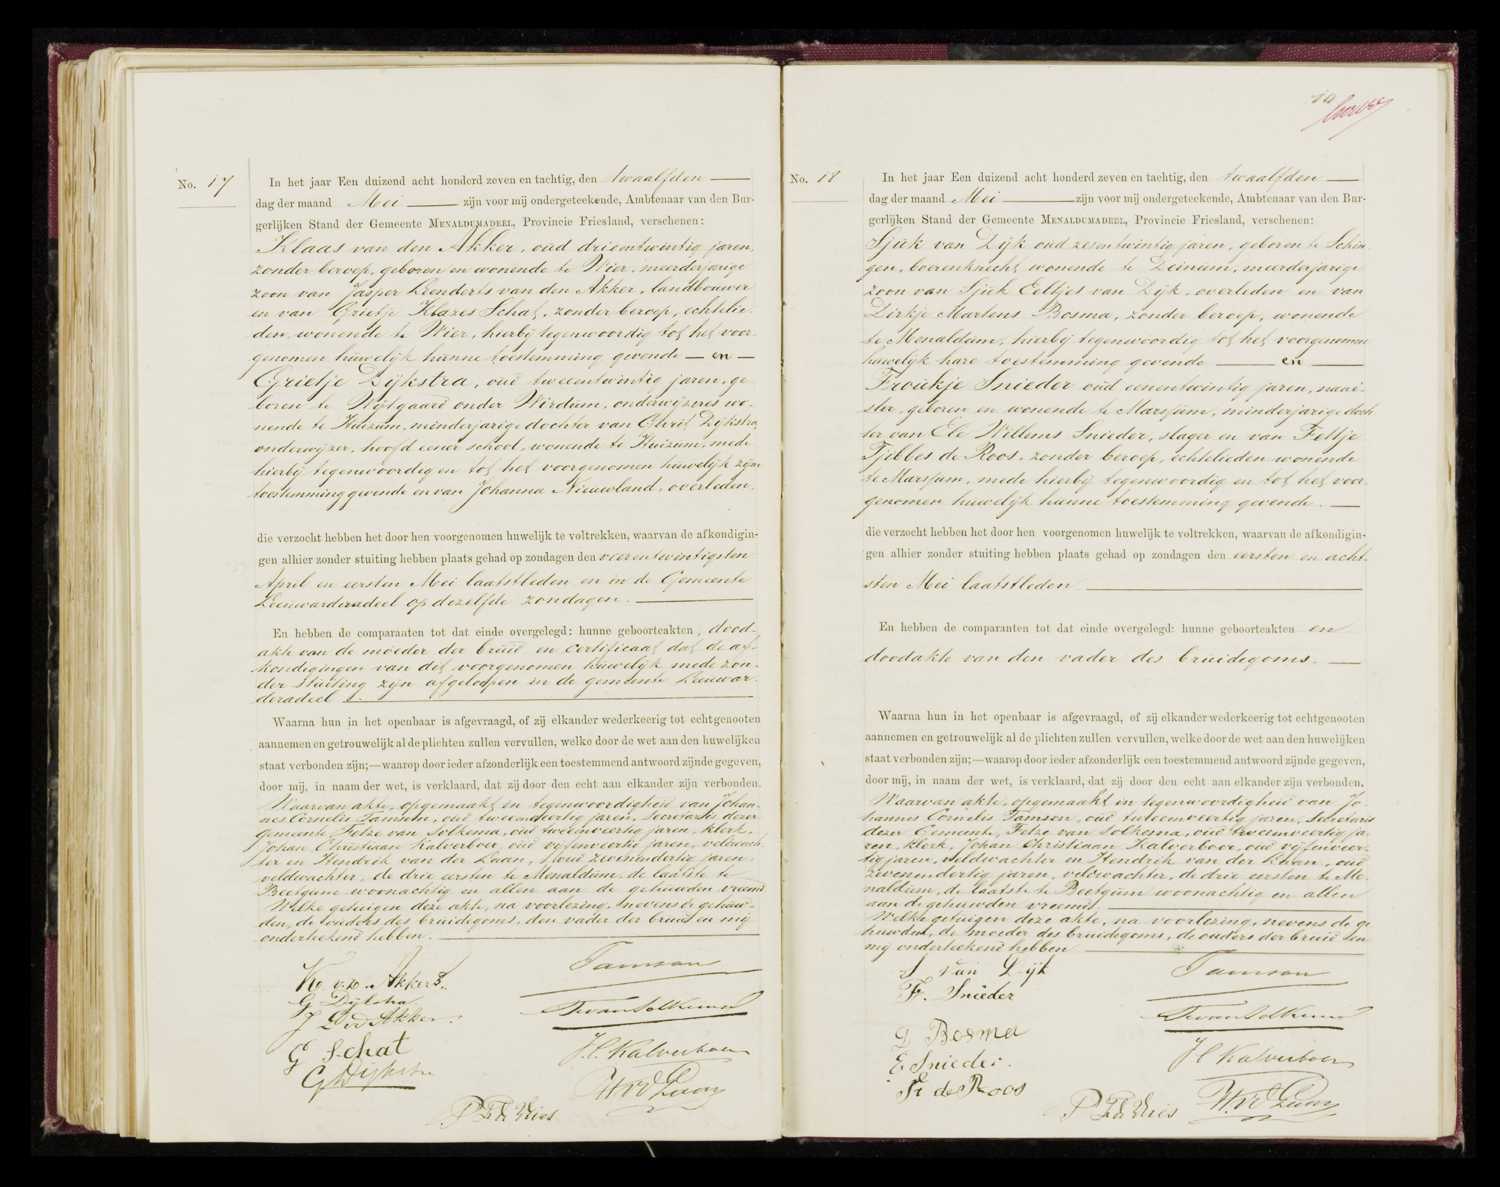 No. 17
In het jaar Een duizend acht honderd zeven en tachtig, den twaalfden
dag der maand Mei zijn voor mij ondergeteekende, Ambtenaar van den Bur-
gerlijken Stand der Gemeente MENALDUMADEEL, Provincie Friesland, verschenen:
Klaas van den Akker, oud drieentwintig jaren,
zonder beroep, geboren en wonende te Wier, meerderjarige
zoon van Jasper Leenderts van den Akker, landbouwer
en van Grietje Klazes Schat, zonder beroep, echtelie-
den, wonende te Wier, hierbij tegenwoordig tot het voor-
genomen huwelijk hunne toestemming gevende — en —
Grietje Dijkstra, oud tweeentwintig jaren, ge-
boren te Wijtgaard onder Wirdum, onderwijzeres wo-
nende te Huizum, minderjarige dochter van Chris Dijkstra,
onderwijzer, hoofd eener school, wonende te Huizum, mede
hierbij tegenwoordig en tot het voorgenomen huwelijk zijne
toestemming gevende en van Johanna Nieuwland, overleden.
die verzocht hebben het door hen voorgenomen huwelijk te voltrekken, waarvan de afkondigin-
gen alhier zonder stuiting hebben plaats gehad op zondagen den vierentwintigsten
April en eersten Mei laatstleden en in de Gemeente
Leeuwarderadeel op dezelfde zondagen.
En hebben de comparanten tot dat einde overgelegd: hunne geboorteakten, dood-
akte van de moeder der bruid en certificaat dat de af-
kondigingen van het voorgenomen huwelijk mede zon-
der stuiting zijn afgeloopen in de gemeente Leeuwar-
deradeel.
Waarna hun in het openbaar is afgevraagd, of zij elkander wederkeerig tot echtgenooten
aannemen en getrouwelijk al de plichten zullen vervullen, welke door de wet aan den huwelijken
staat verbonden zijn;—waarop door ieder afzonderlijk een toestemmend antwoord zijnde gegeven,
door mij, in naam der wet, is verklaard, dat zij door den echt aan elkander zijn verbonden.
Waarvan akte, opgemaakt in tegenwoordigheid van Johan-
nes Cornelis Tamson, oud tweeenveertig jaren, Secretaris dezer
gemeente, Fetze van Solkema, oud tweeenveertig jaren, klerk,
Johan Christiaan Kalverboer, oud vijfenveertig jaren, veldwach-
ter en Hendrik van der Laan, oud zevenendertig jaren,
veldwachter, de drie eersten te Menaldum, de laatste te
Beetgum woonachtig en allen aan de gehuwden vreemd.
Welke getuigen deze akte, na voorlezing, nevens de gehuw-
den, de ouders des bruidegoms, den vader der bruid en mij
onderteekend hebben.
Ks. v.d. Akker.
Tamson
G Dijkstra
J L v d Akker.
F. van Solkema
G Schat
J. C. Kalverboer
G Dijkstra
H. v. d. Laan
No. 18
In het jaar Een duizend acht honderd zeven en tachtig, den twaalfden
dag der maand Mei zijn voor mij ondergeteekende, Ambtenaar van den Bur-
gerlijken Stand der Gemeente MENALDUMADEEL, Provincie Friesland, verschenen:
Sjuk van Dijk oud zesentwintig jaren, geboren te Schin-
gen, boerenknecht wonende te Deinum, meerderjarige
zoon van Sjuk Eeltjes van Dijk, overleden en van
Dirkje Martens Bosma, zonder beroep, wonende
te Menaldum, hierbij tegenwoordig tot het voorgenomen
huwelijk hare toestemming gevende — en —
Froukje Snieder oud eenentwintig jaren, naai-
ster, geboren en wonende te Marssum, minderjarige doch-
ter van Ele Willems Snieder, slager en van Feltje
Tjebbes de Roos, zonder beroep, echtelieden wonende
te Marssum, mede hierbij tegenwoordig en tot het voor-
genomen huwelijk hunne toestemming gevende.
die verzocht hebben het door hen voorgenomen huwelijk te voltrekken, waarvan de afkondigin-
gen alhier zonder stuiting hebben plaats gehad op zondagen den eersten en acht-
sten Mei laatstleden
En hebben de comparanten tot dat einde overgelegd: hunne geboorteakten en
doodakte van den vader des bruidegoms.
Waarna hun in het openbaar is afgevraagd, of zij elkander wederkeerig tot echtgenooten
aannemen en getrouwelijk al de plichten zullen vervullen, welke door de wet aan den huwelijken
staat verbonden zijn;—waarop door ieder afzonderlijk een toestemmend antwoord zijnde gegeven,
door mij, in naam der wet, is verklaard, dat zij door den echt aan elkander zijn verbonden.
Waarvan akte, opgemaakt in tegenwoordigheid van Jo-
hannes Cornelis Tamson, oud tweeenveertig jaren, Secretaris
dezer Gemeente, Fetze van Solkema, oud tweeenveertig ja-
ren, klerk, Johan Christiaan Kalverboer, oud vijfenveer-
tig jaren, veldwachter en Hendrik van der Laan, oud
zevenendertig jaren, veldwachter, de drie eersten te Me-
naldum, de laatste te Beetgum woonachtig en allen
aan de gehuwden vreemd.
Welke getuigen deze akte, na voorlezing, nevens de ge-
huwden, de moeder des bruidegoms, de ouders der bruid en
mij onderteekend hebben
S van Dijk
Tamson
F. Snieder
F. van Solkema
D Bosma
E Snieder.
J C Kalverboer
F. de Roos
H. v d Laan